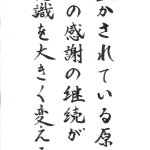 かされている原
の感謝の継続が
識を大きく変える